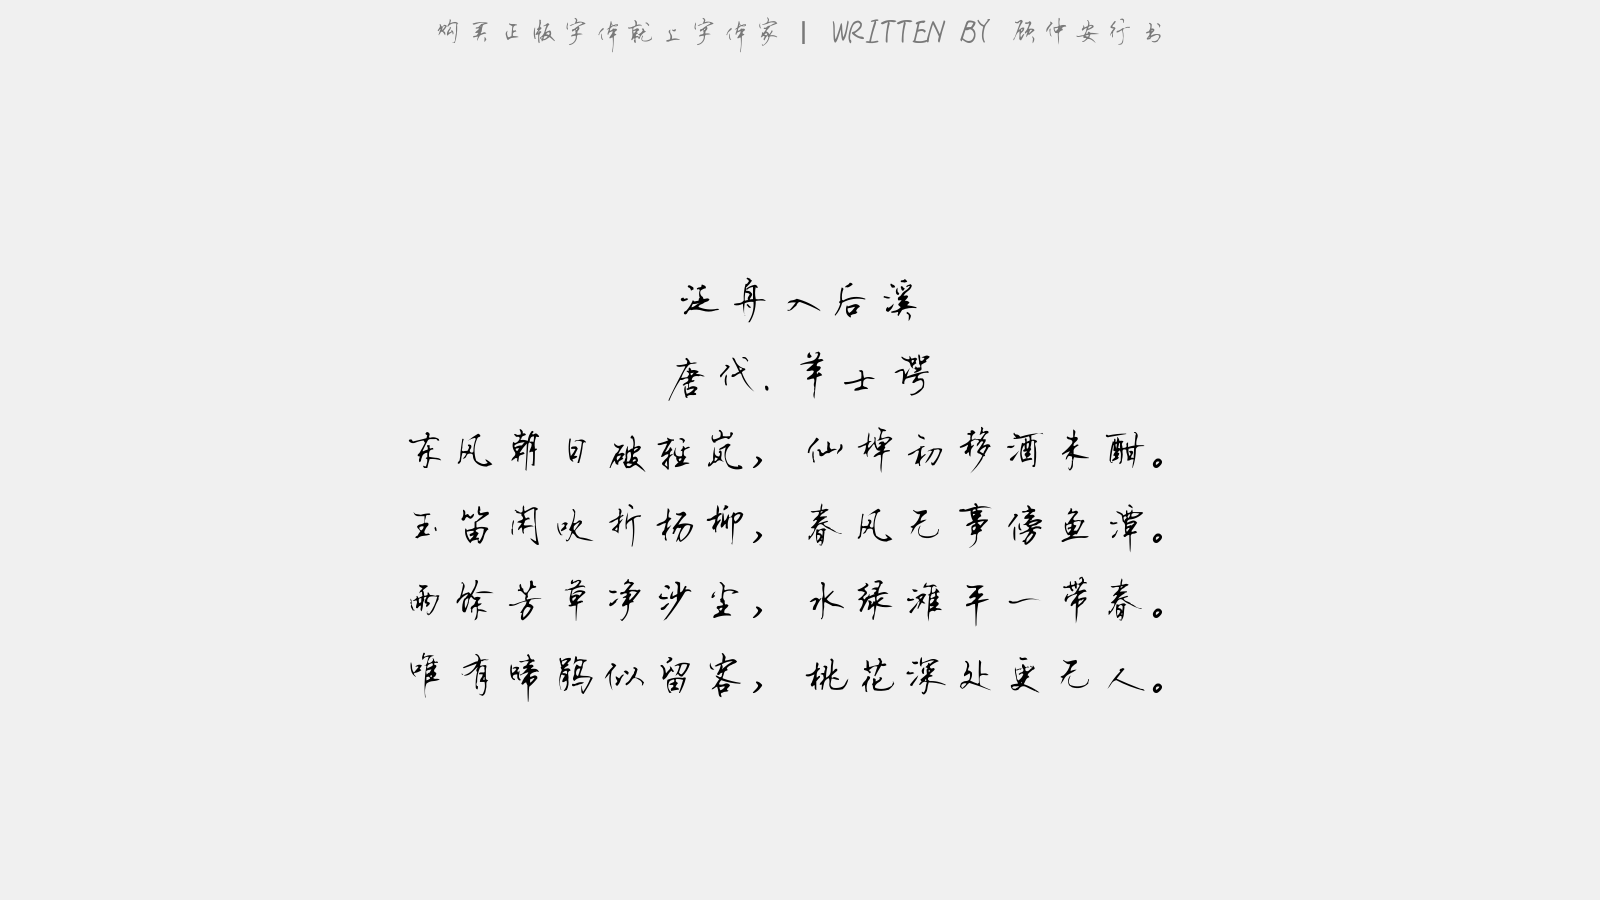 购买正版字体就上字体家 | WRITTEN BY 顾仲安行书
泛舟入后溪
唐代.羊士谔
东风朝日破轻岚，仙棹初移酒未酣。
玉笛闲吹折杨柳，春风无事傍鱼潭。
雨馀芳草净沙尘，水绿滩平一带春。
唯有啼鹃似留客，桃花深处更无人。